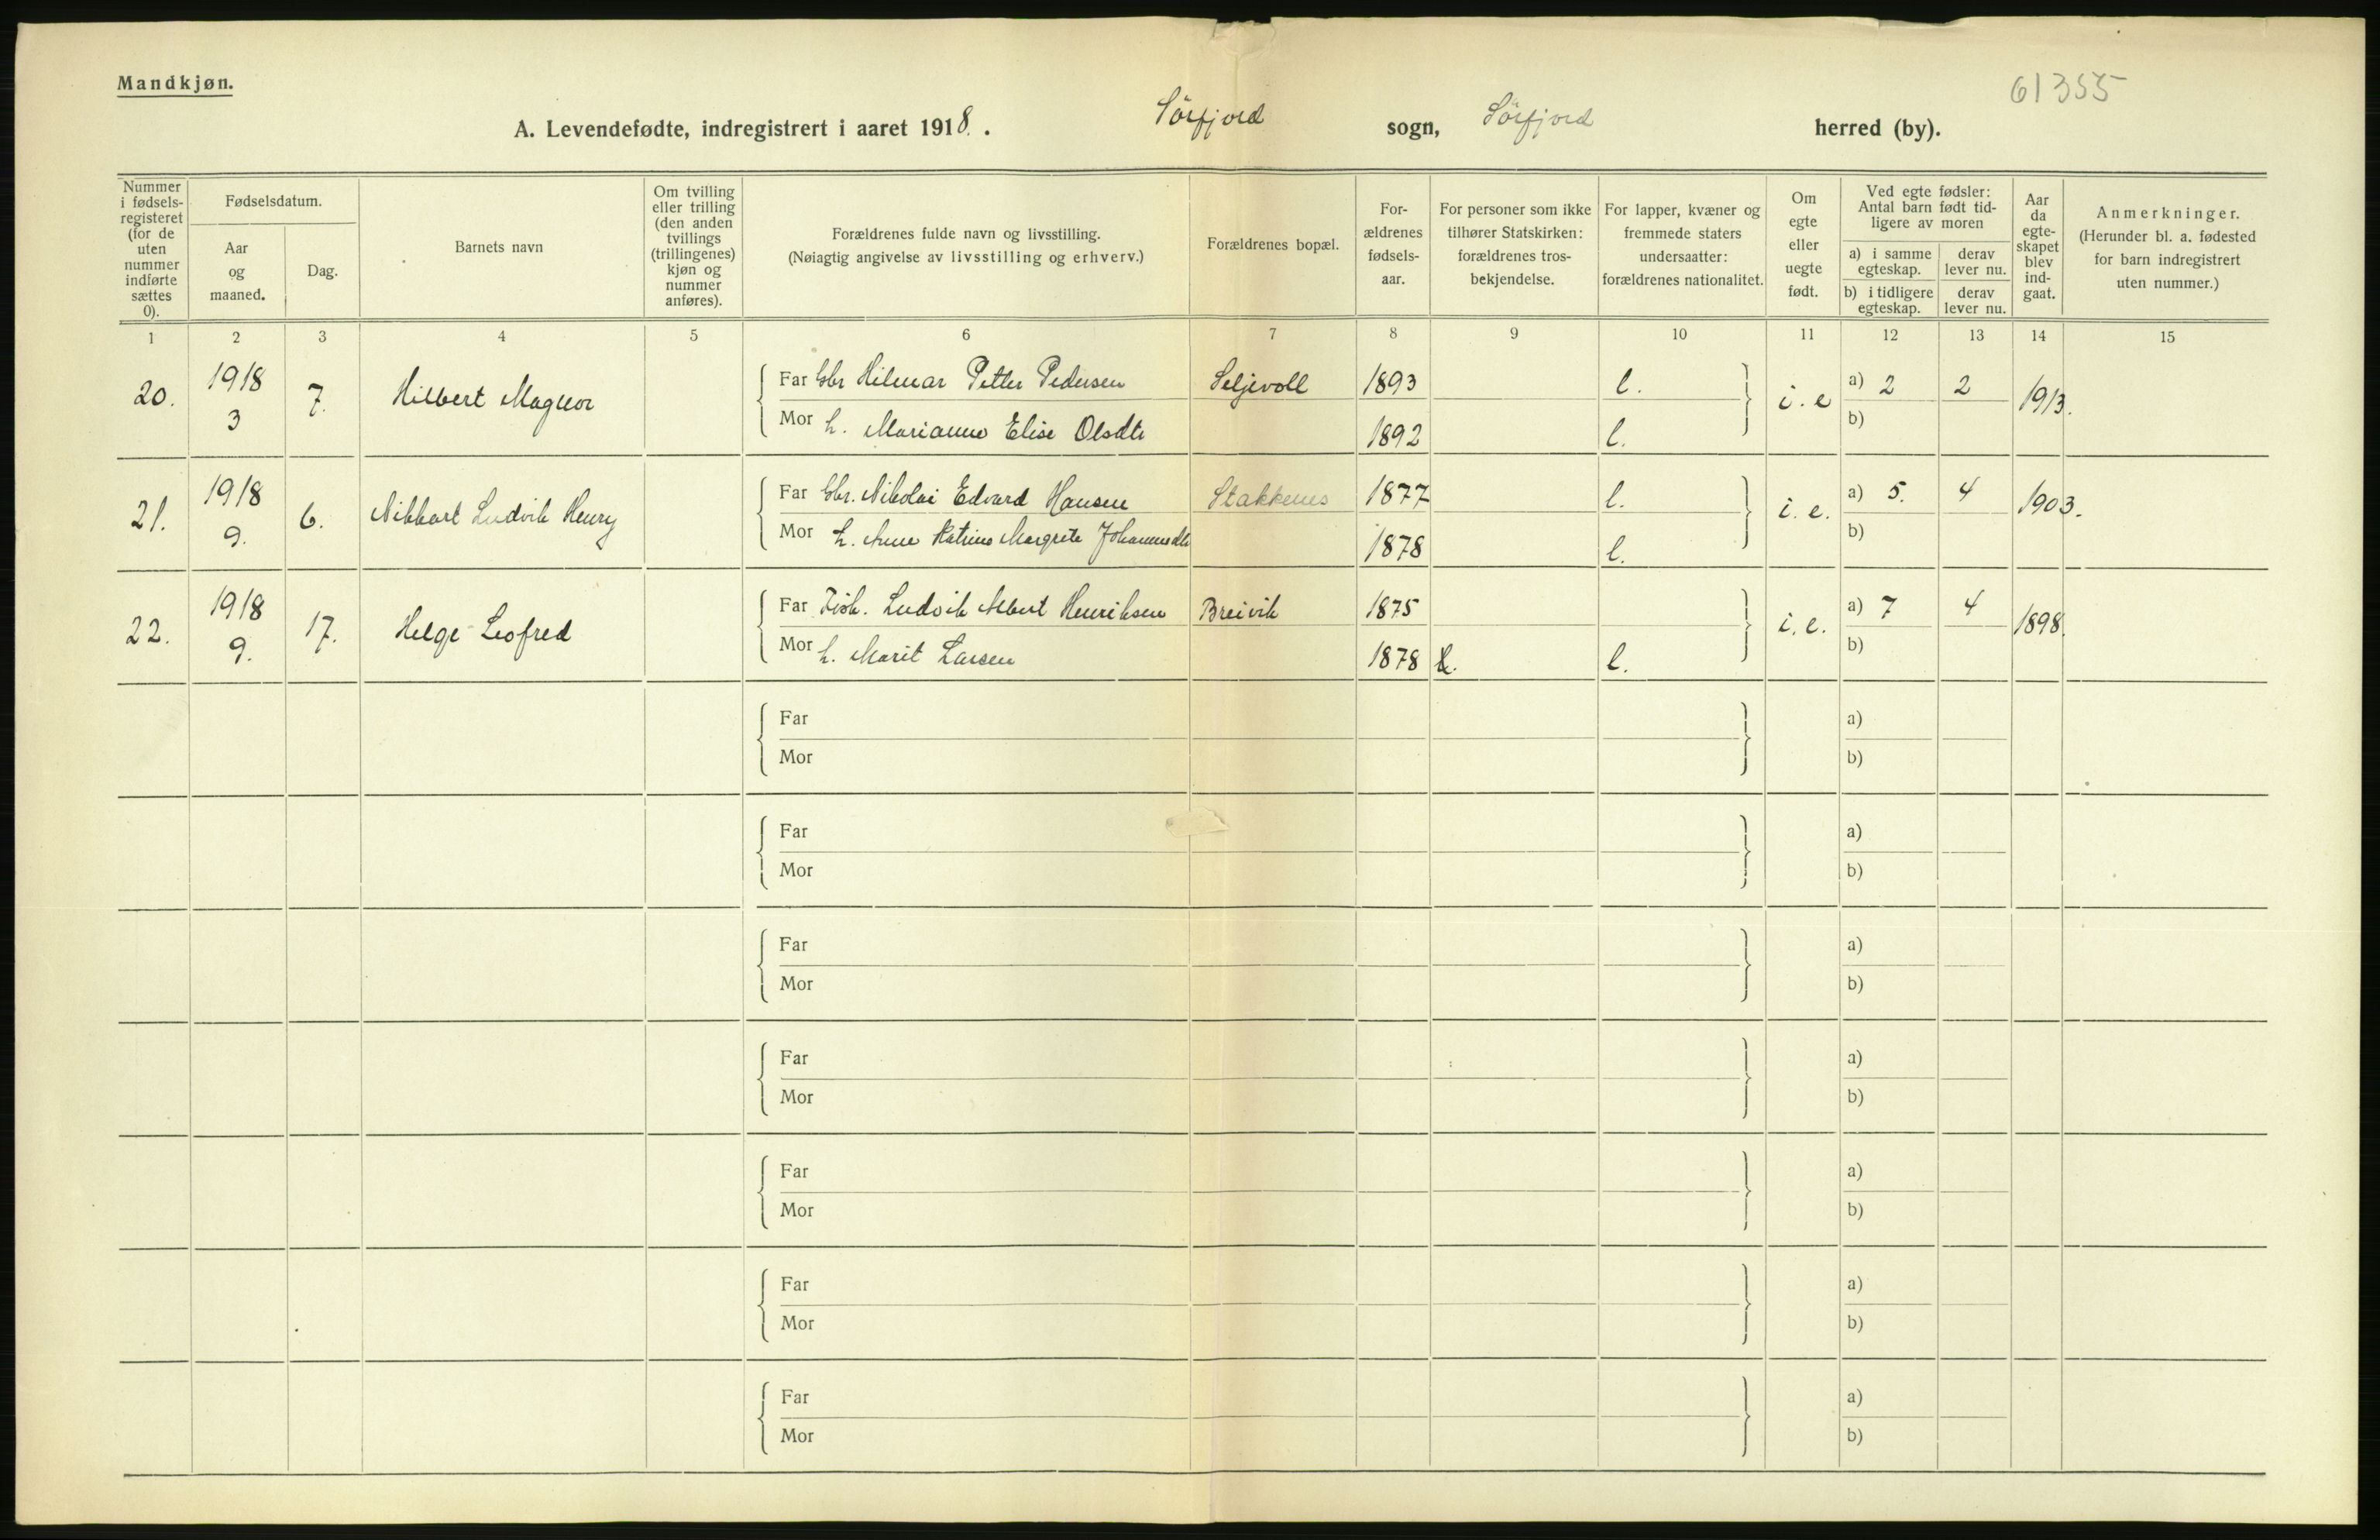 Mandkjøn.
61355
A. Levendefødte, indregistrert i aaret 1918. Sörfjord sogn, Sörfjord herred (by).
Nummer i fødsels-registeret (for de uten nummer indførte sættes 0).
Fødselsdatum.
Aar og maaned.
Dag.
Barnets navn
Om tvilling eller trilling (den anden tvillings (trillingenes) kjøn og nummer anføres).
Forældrenes fulde navn og livsstilling.
(Nøiagtig angivelse av livsstilling og erhverv.)
Forældrenes bopæl.
For-ældrenes fødsels-aar.
For personer som ikke tilhører Statskirken: forældrenes tros-bekjendelse.
For lapper, kvæner og fremmede staters undersaatter: forældrenes nationalitet.
Om egte eller uegte født.
Ved egte fødsler: Antal barn født tid-ligere av moren
a) i samme egteskap.
derav lever nu.
b) i tidligere egteskap.
derav lever nu.
Aar da egte-skapet blev ind-gaat.
Anmerkninger.
(Herunder bl. a. fødested for barn indregistrert uten nummer.)
1 2 3 4 5 6 7 8 9 10 11 12 13 14 15
20. 1918 3 7. Hilbert Magnor
Far Gbr Hilmar Petter Pedersen Seljevoll 1893 l. i. e a) 2 2 1913.
Mor h. Marianne Elise Olsdtr 1892 l. b)
21. 1918 9. 6. Nikkart Ludvik Henry
Far Gbr. Nikolai Edvard Hansen Stakkenes 1877 l. i. e. a) 5. 4 1903.
Mor h. Anne Katrine Margrete Johannesdtr 1878 l. b)
22. 1918 9. 17. Helge Leofred
Far Fisk. Ludvik Albert Henriksen Breivik 1875 i. e. a) 7 4 1898.
Mor h. Marit Larsen 1878 l. b)
Far a)
Mor b)
Far a)
Mor b)
Far a)
Mor b)
Far a)
Mor b)
Far a)
Mor b)
Far a)
Mor b)
Far a)
Mor b)